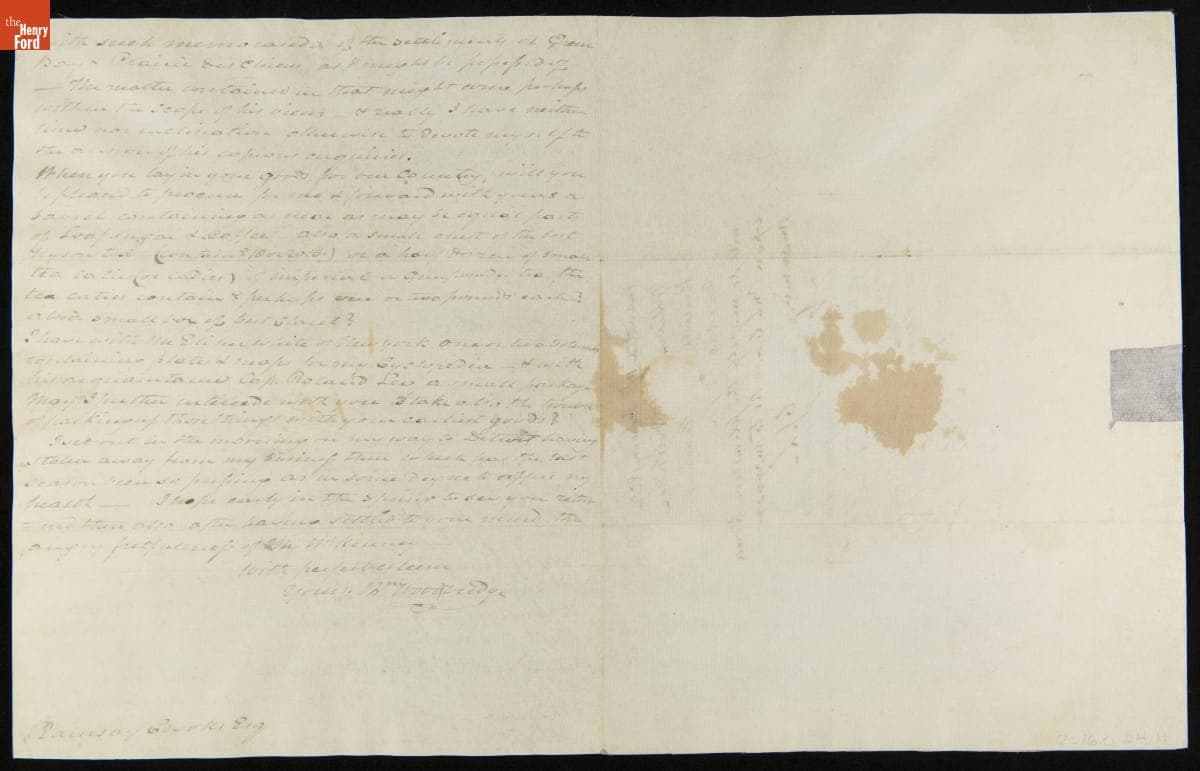 the
Henry
Ford
with such memoranda of the settlements of Green
Bay & Prairie des Chiens, as I might be possessed of
— The matter contained in that might come perhaps
within the scope of his views — & really I have neither
time nor inclination otherwise to devote myself to
the answer of his copious enquiries.
When you lay in your goods for our Country, will you
be pleased to procure for me & forward with yours a
barrel containing as near as may be equal parts
of Loaf sugar & Coffee also a small chest of the best
Hyson tea (containg 18 or 20 lb.) or a half dozen of small
tea caties (or cadies) of imperial or Gunpowder tea, the
tea caties contain I perhaps one or two pounds each?
also a small box of best Claret?
I have with Mr Eliher White of New York one or two volumes
containing plates & maps for my Cyclopedia — & with
his acquaintance Cap. Roland Lee a small package
May I further intercede with you to take also the trouble
of packing up these things with your earliest goods?
I set out in the morning on my way to Detroit having
stolen away from my business there which has the last
season been so pressing as in some degree to affect my
health — I hope early in the Spring to see you return
& find then also after having settled to your mind, the
angry fretfulness of Mr McKenney —
With perfect esteem
Yours, Wm Woodbridge
Ramsay Crooks Esq
2016.0.44.4